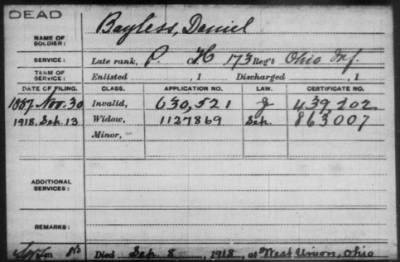 DEAD
NAME OF SOLDIER: Bayless, Daniel
SERVICE: Late rank, P. H 173 Reg't Ohio Inf.
TERM OF SERVICE: Enlisted , 1 Discharged , 1
DATE OF FILING. CLASS. APPLICATION NO. LAW. CERTIFICATE NO.
1887 Nov. 30 Invalid, 630,521 J 439,202
1918 Sep. 13 Widow, 1127869 Sep. 863007
Minor,
ADDITIONAL SERVICES:
REMARKS:
Died Sep. 8, 1918, at West Union, Ohio